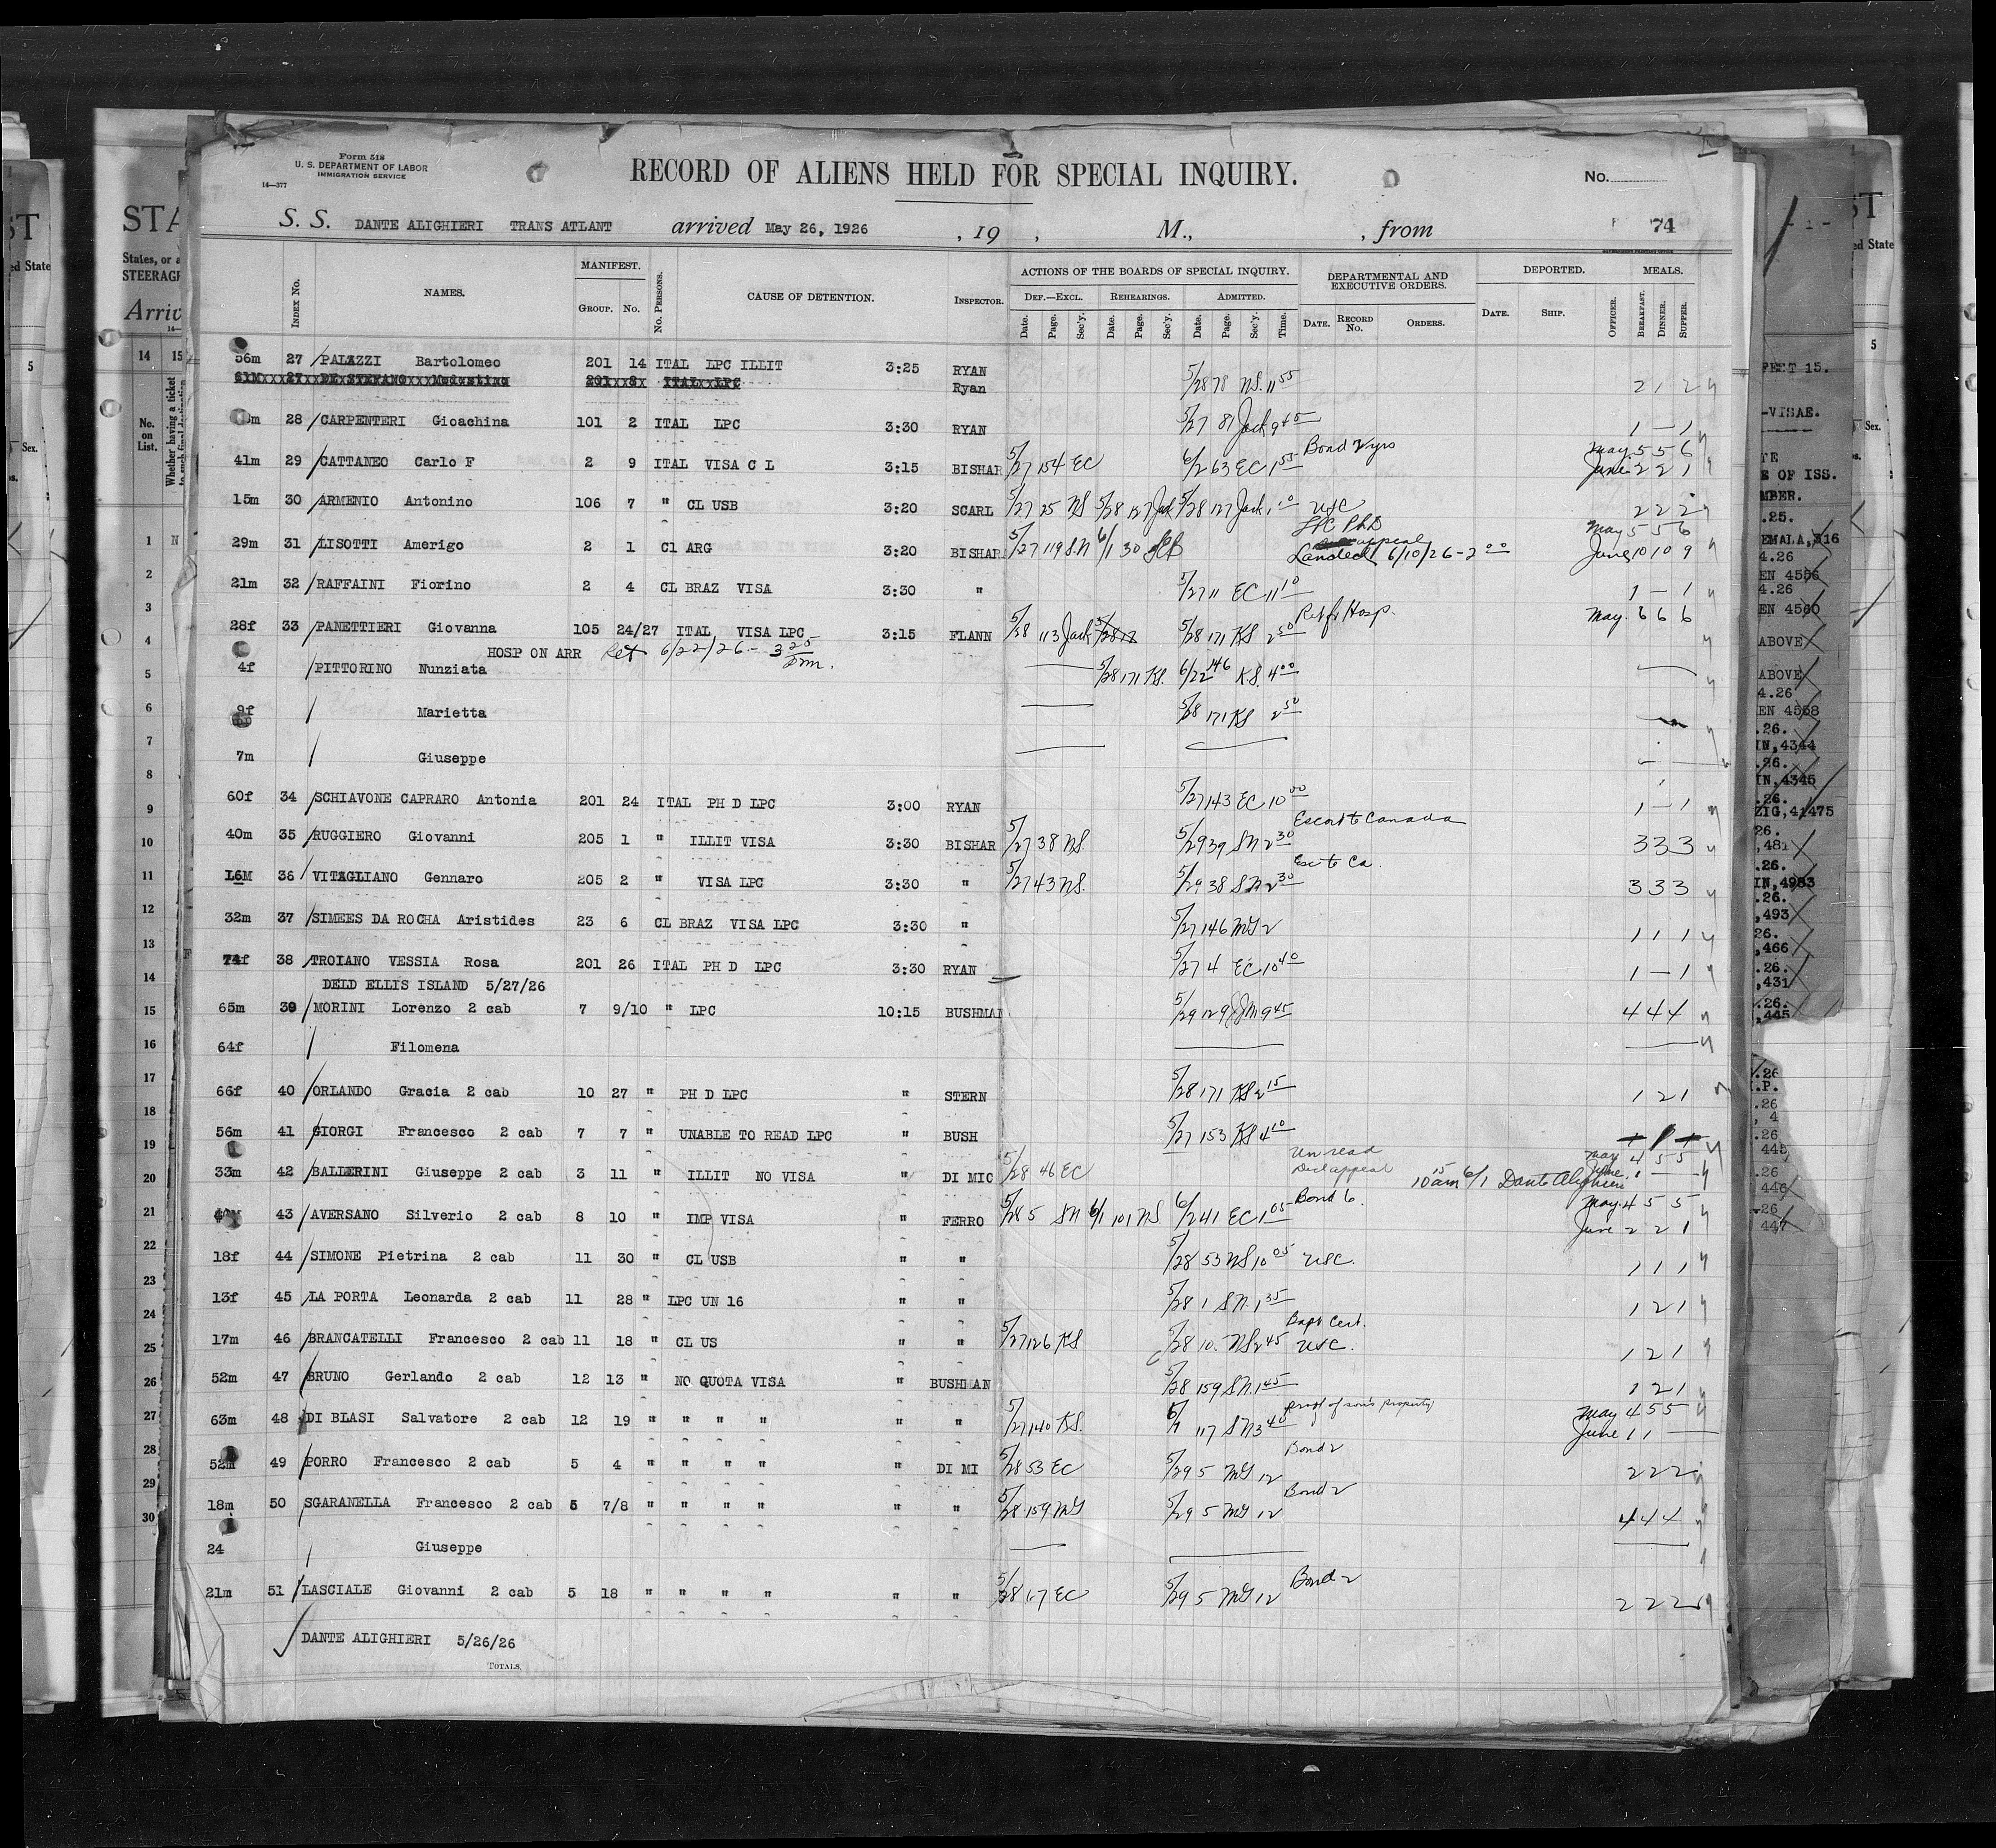 Form 518
U. S. DEPARTMENT OF LABOR
IMMIGRATION SERVICE
14—377
RECORD OF ALIENS HELD FOR SPECIAL INQUIRY.
No.
S. S. DANTE ALIGHIERI TRANS ATLANT arrived May 26, 1926 , 19 , M., , from 74
Index No. NAMES. MANIFEST. Group. No. No. Persons. CAUSE OF DETENTION. Inspector. ACTIONS OF THE BOARDS OF SPECIAL INQUIRY. DEPARTMENTAL AND EXECUTIVE ORDERS. DEPORTED. MEALS.
Def.—Excl. Rehearings. Admitted.
Date. Page. Sec'y. Date. Page. Sec'y. Date. Page. Sec'y. Time. Date. Record No. Orders. Date. Ship. Officer. Breakfast. Dinner. Supper.
56m 27 PALAZZI Bartolomeo 201 14 ITAL LPC ILLIT 3:25 RYAN
Ryan 5/28 78 NS. 11 55 2 1 2
28 CARPENTERI Gioachina 101 2 ITAL LPC 3:30 RYAN 5/27 81 Jack 9 45 1 — 1
41m 29 CATTANEO Carlo F 2 9 ITAL VISA C L 3:15 BISHAR 5/27 154 EC 6/2 63 EC 1 55 Bond 2 yrs May 5 5 6
June 2 2 1
15m 30 ARMENIO Antonino 106 7 " CL USB 3:20 SCARL 5/27 25 NS 5/28 127 Jack 5/28 127 Jack 1 10 USC 2 2 2
29m 31 LISOTTI Amerigo 2 1 Cl ARG 3:20 BISHAR 5/27 119 S.N 6/1 30 LPC PhD appeal May 5 5 6
Landed 6/10/26 - 2 00 June 10 10 9
21m 32 RAFFAINI Fiorino 2 4 CL BRAZ VISA 3:30 " 5/27 11 EC 11 10 1 — 1
28f 33 PANETTIERI Giovanna 105 24/27 ITAL VISA LPC 3:15 FLANN 5/28 113 Jack 5/28 5/28 171 KS 2 50 Hosp. May 6 6 6
HOSP ON ARR Ret 6/22/26 - 3 25 pm.
4f PITTORINO Nunziata 5/28 171 KS. 6/22 146 K.S. 4 00
9f Marietta 5/28 171 KS 2 50
7m Giuseppe
60f 34 SCHIAVONE CAPRARO Antonia 201 24 ITAL PH D LPC 3:00 RYAN 5/27 143 EC 10 00 1 — 1
40m 35 RUGGIERO Giovanni 205 1 " ILLIT VISA 3:30 BISHAR 5/27 38 NS. 5/29 39 SN 2 30 Escort to Canada 3 3 3
16M 36 VITAGLIANO Gennaro 205 2 " VISA LPC 3:30 " 5/27 43 NS. 5/29 38 SN 2 30 Esc to Ca. 3 3 3
32m 37 SIMEES DA ROCHA Aristides 23 6 CL BRAZ VISA LPC 3:30 " 5/27 146 MG 2 1 1 1
74f 38 TROIANO VESSIA Rosa 201 26 ITAL PH D LPC 3:30 RYAN 5/27 4 EC 10 40 1 — 1
DELD ELLIS ISLAND 5/27/26
65m 39 MORINI Lorenzo 2 cab 7 9/10 " LPC 10:15 BUSHMAN 5/29 129 JM 9 45 4 4 4
64f Filomena
66f 40 ORLANDO Gracia 2 cab 10 27 " PH D LPC " STERN 5/28 171 KS 2 15 1 2 1
56m 41 GIORGI Francesco 2 cab 7 7 " UNABLE TO READ LPC " BUSH 5/27 153 KS 4 10
33m 42 BALLERINI Giuseppe 2 cab 3 11 " ILLIT NO VISA " DI MIC 5/28 46 EC Un read Decl appeal 10 15 am 6/1 Dante Alighieri May 4 5 5
June 1 — —
43 AVERSANO Silverio 2 cab 8 10 " IMP VISA " FERRO 5/28 5 SN 6/1 101 NS 6/2 41 EC 1 05 Bond 6. May 4 5 5
June 2 2 1
18f 44 SIMONE Pietrina 2 cab 11 30 " CL USB " " 5/28 53 NS 10 05 USC. 1 1 1
13f 45 LA PORTA Leonarda 2 cab 11 28 " LPC UN 16 " " 5/28 1 SN. 1 35 1 2 1
17m 46 BRANCATELLI Francesco 2 cab 11 18 " CL US " " 5/27 126 KS 5/28 10. NS 2 45 Bapt Cert. USC. 1 2 1
52m 47 BRUNO Gerlando 2 cab 12 13 " NO QUOTA VISA " BUSHMAN 5/28 159 SN. 1 45 1 2 1
63m 48 DI BLASI Salvatore 2 cab 12 19 " " " " " " 5/27 140 KS. 6/1 117 SN 3 40 proof of son's property May 4 5 5
June 1 1 —
52m 49 PORRO Francesco 2 cab 5 4 " " " " " DI MI 5/28 53 EC 5/29 5 MG 12 Bond 2 2 2 2
18m 50 SGARANELLA Francesco 2 cab 5 7/8 " " " " " " 5/28 159 MG 5/29 5 MG 12 Bond 2 4 4 4
24 Giuseppe
21m 51 LASCIALE Giovanni 2 cab 5 18 " " " " " " 5/28 67 EC 5/29 5 MG 12 Bond 2 2 2 2
DANTE ALIGHIERI 5/26/26
Totals.